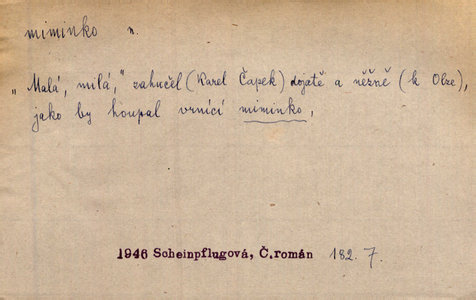 miminko n.
„Malá, milá," zahučel (Karel Čapek) dojatě a něžně (k Olze),
jako by houpal vrnící miminko,
1946 Scheinpflugová, Č.román 182.7.